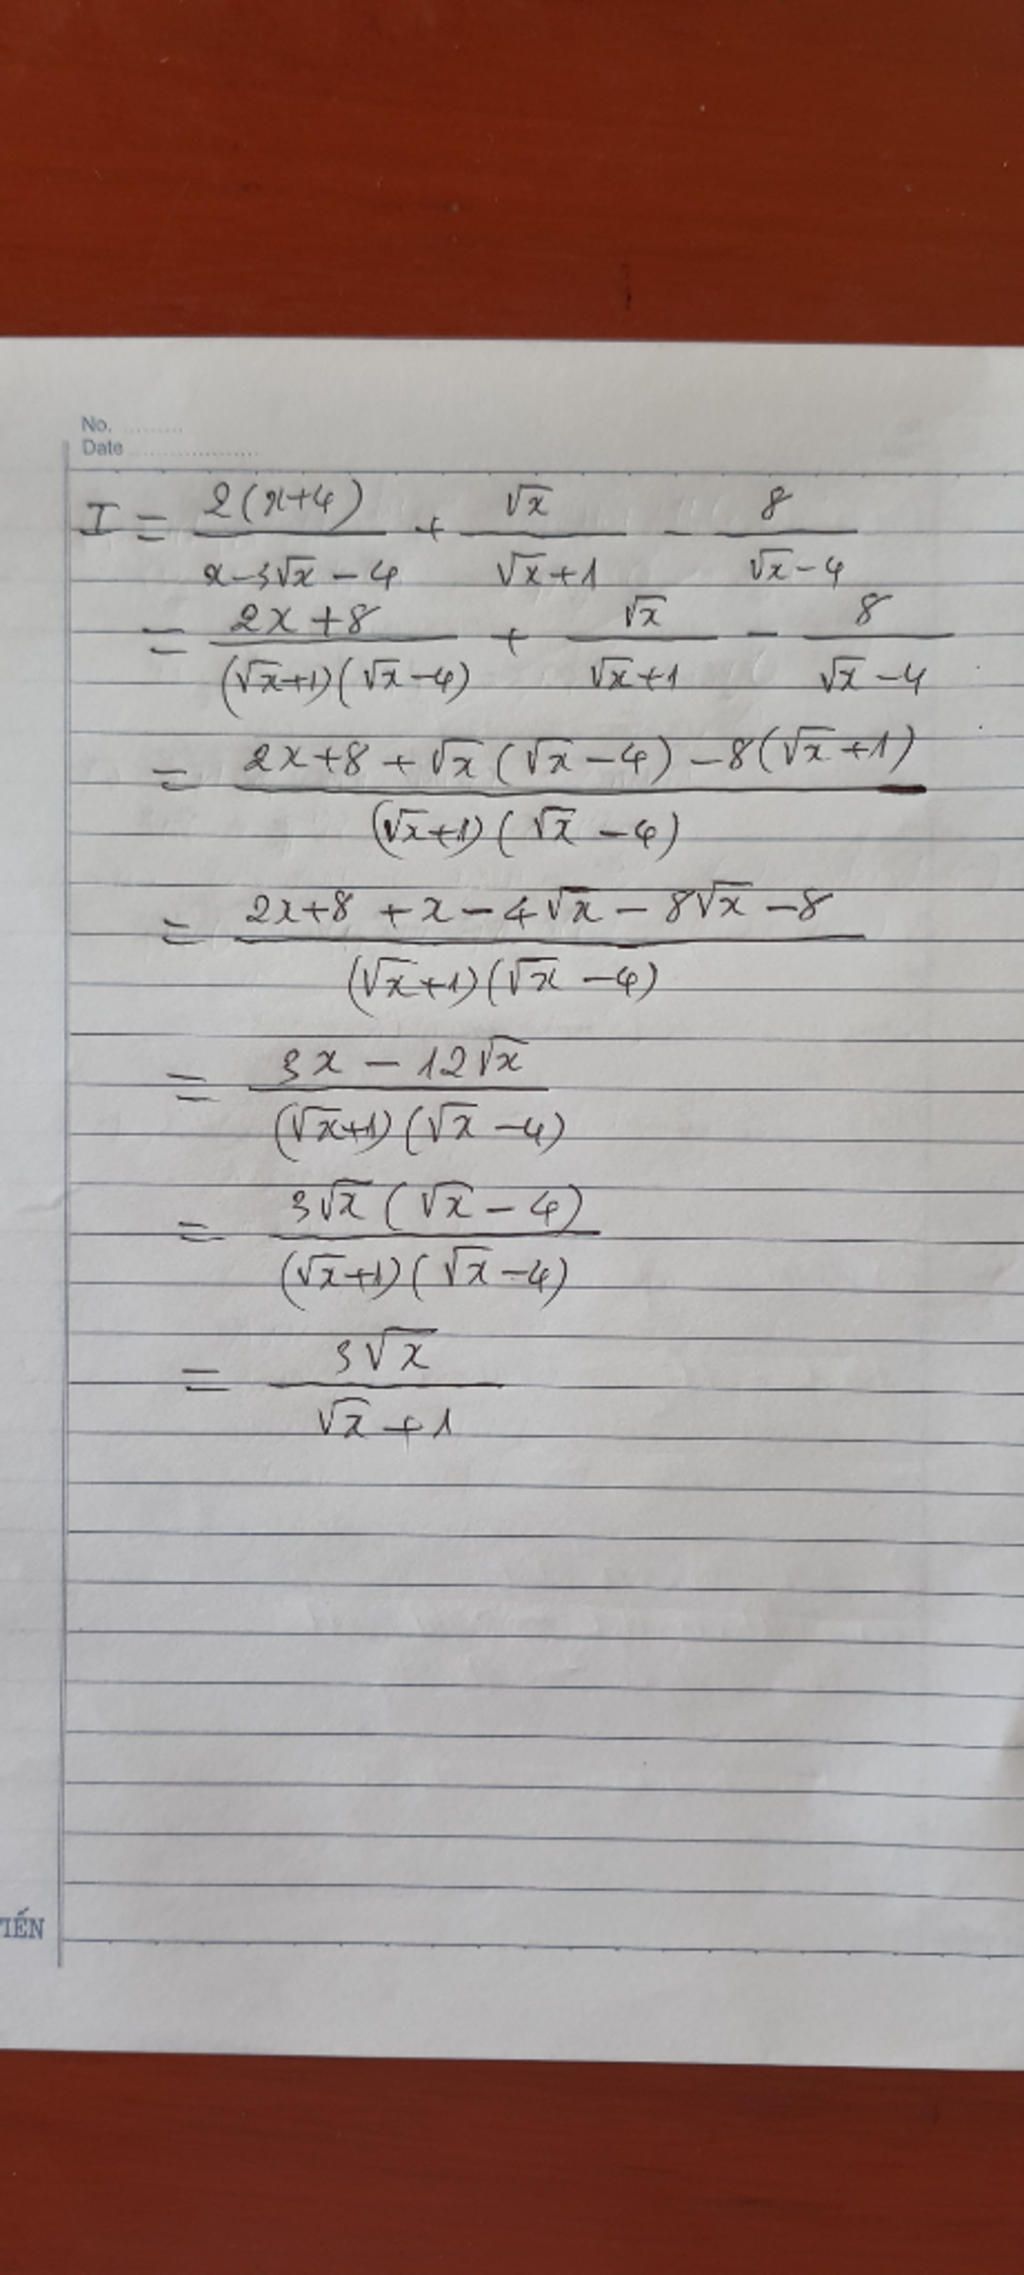 No. .........
Date ...................
I = 2(x+4)/(x-3√x-4) + √x/(√x+1) - 8/(√x-4)
= (2x+8)/((√x+1)(√x-4)) + √x/(√x+1) - 8/(√x-4)
= (2x+8+√x(√x-4)-8(√x+1))/((√x+1)(√x-4))
= (2x+8+x-4√x-8√x-8)/((√x+1)(√x-4))
= (3x-12√x)/((√x+1)(√x-4))
= (3√x(√x-4))/((√x+1)(√x-4))
= 3√x/(√x+1)
TIẾN